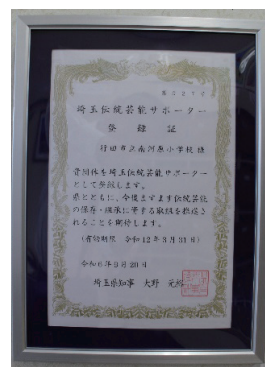 埼玉伝統芸能サポーター
登録証
行田市立南河原小学校 様
貴団体を埼玉伝統芸能サポーター
として登録します。
県とともに、今後ますます伝統芸能
の保存・継承に資する取組を推進さ
れることを期待します。
(有効期限 令和12年3月31日)
令和6年9月20日
埼玉県知事 大野 元裕